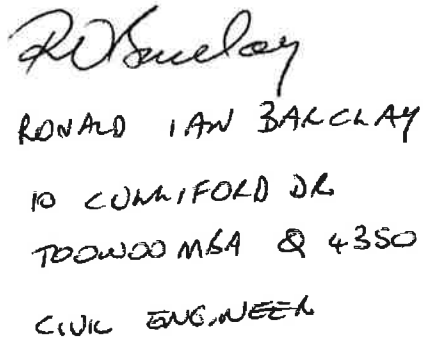 RI Barclay
RONALD IAN BARCLAY
10 CULLIFORD DR
TOOWOOMBA Q 4350
CIVIL ENGINEER